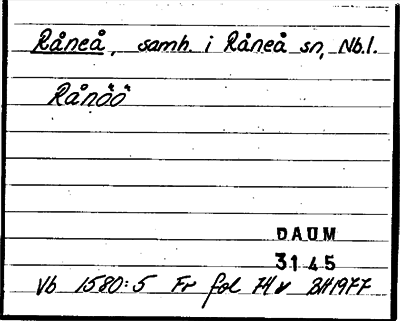 Råneå, samh. i Råneå sn, Nb.l.
Rånöö
DAUM
3145
Vb 1580:5 Fr fol 74v BH1977